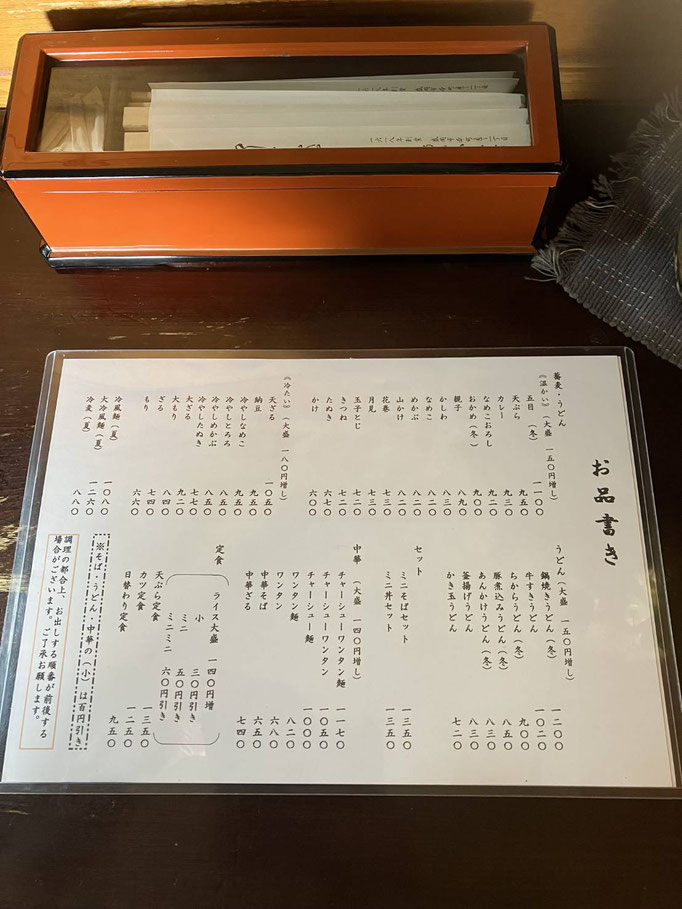 お品書き
蕎麦・うどん
《温かい》(大盛 一五〇円増し)
五目(冬) 一一〇〇
天ぷら 九五〇
カレー 九三〇
なめこおろし 九二〇
おかめ(冬) 九〇〇
親子 八九〇
かしわ 八三〇
なめこ 八二〇
めかぶ 八二〇
山かけ 八二〇
花巻 七三〇
月見 七三〇
玉子とじ 七二〇
きつね 七二〇
たぬき 六六〇
かけ 六〇〇
《冷たい》(大盛 一八〇円増し)
天ざる 一〇五〇
納豆 九五〇
冷やしなめこ 九五〇
冷やしとろろ 八五〇
冷やしめかぶ 八五〇
冷やしたぬき 七七〇
大ざる 九二〇
大もり 八四〇
ざる 七四〇
もり 六六〇
冷風麺(夏) 一〇八〇
大冷風麺(夏) 一二六〇
冷麦(夏) 八八〇
うどん(大盛 一五〇円増し)
鍋焼きうどん(冬) 一二〇〇
牛すきうどん 一〇二〇
ちからうどん(冬) 九〇〇
豚煮込みうどん(冬) 八五〇
あんかけうどん(冬) 八三〇
釜揚げうどん 八三〇
かき玉うどん 七二〇
セット
ミニそばセット 一三五〇
ミニ丼セット 一三五〇
中華(大盛 一四〇円増し)
チャーシューワンタン麺 一一七〇
チャーシューワンタン 一〇五〇
チャーシュー麺 一〇〇〇
ワンタン麺 八二〇
ワンタン 六八〇
中華そば 六五〇
中華ざる 七四〇
定食
ライス大盛 一四〇円増
小 三〇円引き
ミニ 五〇円引き
ミニミニ 六〇円引き
天ぷら定食 一三五〇
カツ定食 一二五〇
日替わり定食 九五〇
※そば・うどん・中華の(小)は百円引き
調理の都合上、お出しする順番が前後する
場合がございます。ご了承お願します。